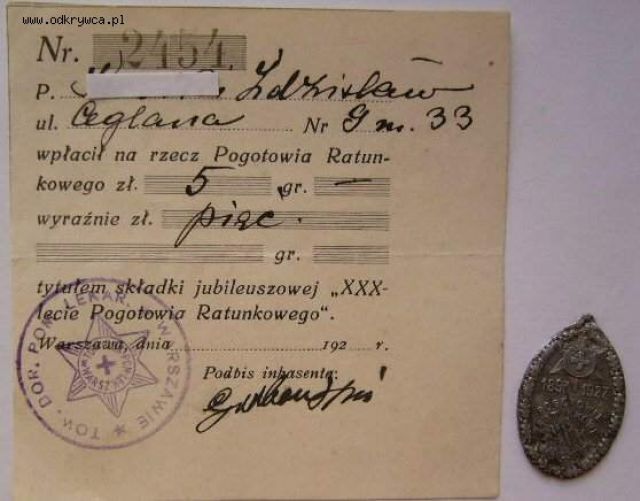 www.odkrywca.pl
Nr. 2454
P. Zdzisław
ul. Ceglana Nr 9 m. 33
wpłacił na rzecz Pogotowia Ratun-
kowego zł. 5 gr. —
wyraźnie zł. pięć.
gr.
tytułem składki jubileuszowej „XXX-
lecie Pogotowia Ratunkowego".
Warszawa, dnia 192 r.
Podbis inkasenta:
TOW. DOR. POM. LEKAR. W WARSZAWIE
1897 1927